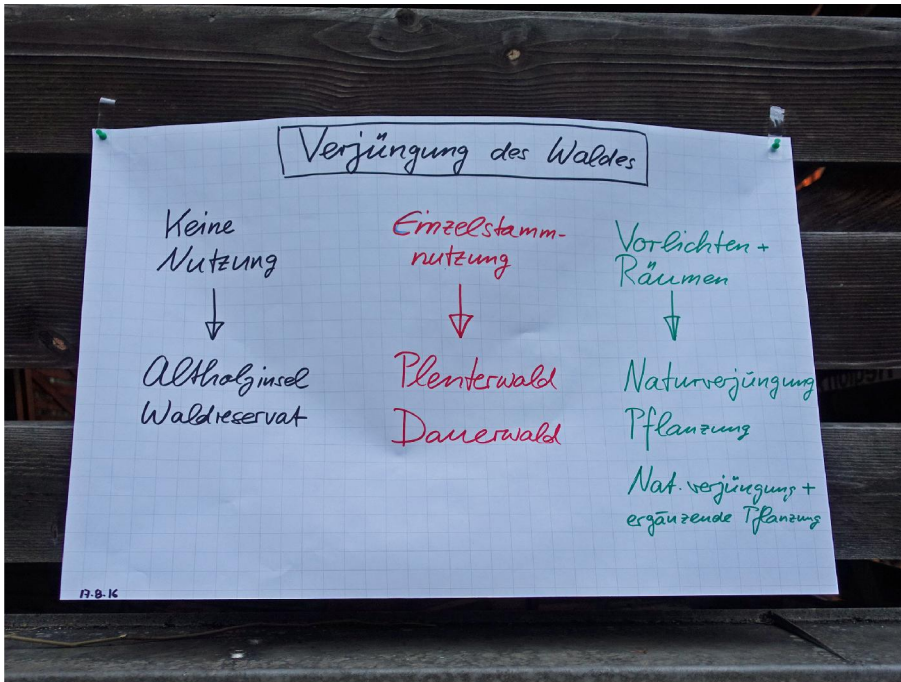 Verjüngung des Waldes
Keine
Nutzung
Altholzinsel
Waldreservat
Einzelstamm-
nutzung
Plenterwald
Dauerwald
Vorlichten +
Räumen
Naturverjüngung
Pflanzung
Nat. verjüngung +
ergänzende Pflanzung
17.8.16